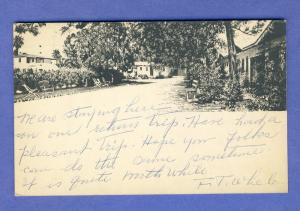 We are staying here
on our return trip. Have had a
pleasant trip. Hope you folks
can do the same sometime
It is quite worth while